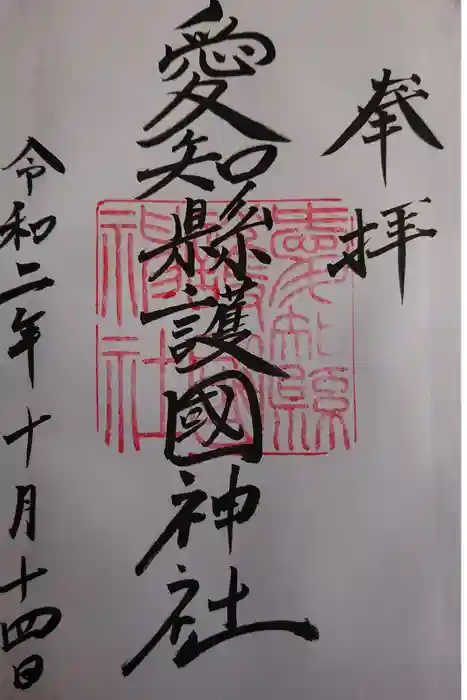 奉拝
愛知縣護國神社
愛知縣護國神社
令和二年十月十四日